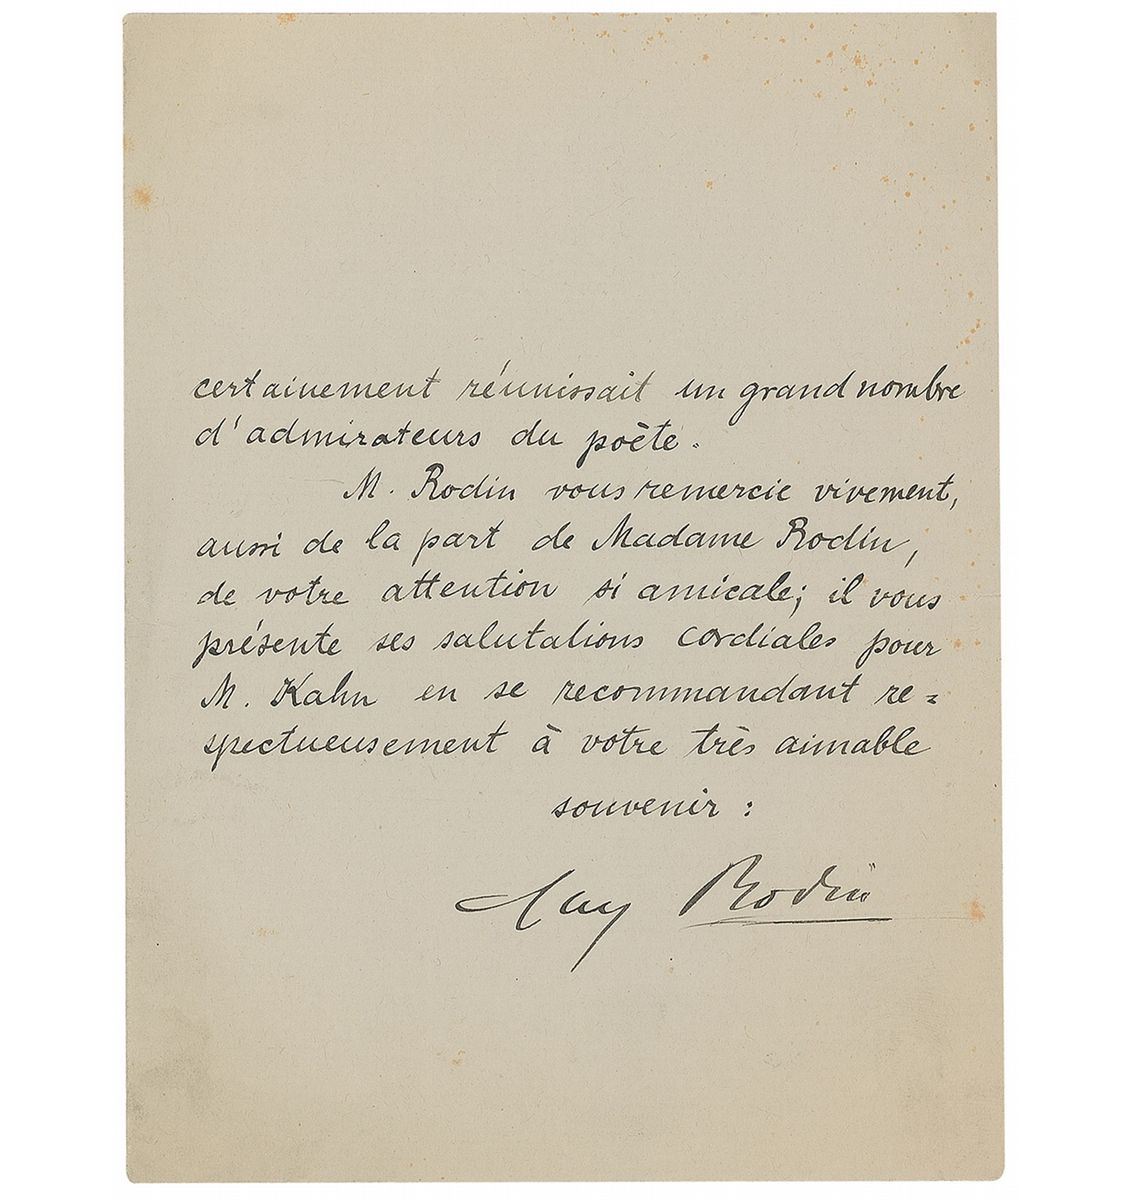 certainement réunissait un grand nombre
d'admirateurs du poète.
M. Rodin vous remercie vivement,
aussi de la part de Madame Rodin,
de votre attention si amicale; il vous
présente ses salutations cordiales pour
M. Kahn en se recommandant re=
spectueusement à votre très aimable
souvenir:
Aug Rodin